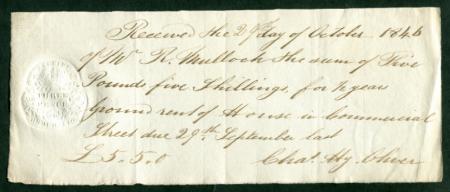 Received the 29th day of October 1846
of Mr. R. Mullock the sum of Five
Pounds five Shillings, for ½ years
Ground rent of House in Commercial
Street due 29th September last
£5.5.0 Chas. Hy. Oliver
THREE
PENCE